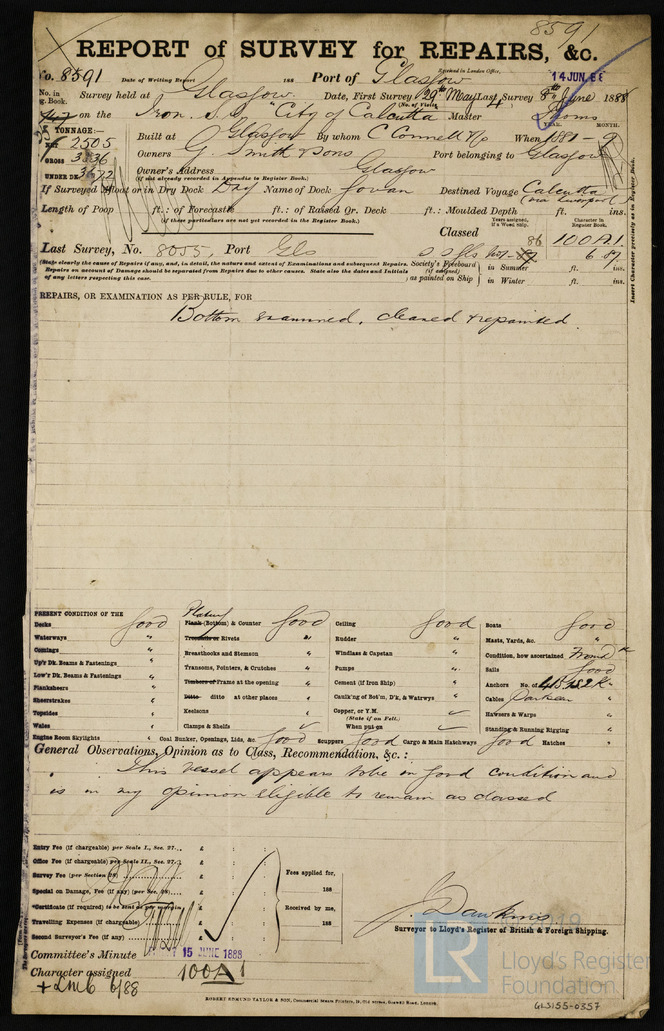 8591
REPORT of SURVEY for REPAIRS, &c.
No. 8591 Date of Writing Report 188 Port of Glasgow Received in London Office, 14 JUN. 88
No. in Reg. Book. Survey held at Glasgow Date, First Survey 29th May Last Survey 8th June 1888
(No. of Visits 4)
on the Iron S.S. "City of Calcutta" Master Thoms
TONNAGE:— YEAR. MONTH.
NET 2505 Built at Glasgow By whom C Connell & Co When 1881 - 9
GROSS 3836 Owners G. Smith & Sons Port belonging to Glasgow
UNDER DK. 3672 Owner's Address Glasgow
(if not already recorded in Appendix to Register Book.)
If Surveyed Afloat or in Dry Dock Dry Name of Dock Govan Destined Voyage Calcutta
(via Liverpool)
Length of Poop ft.: of Forecastle ft.: of Raised Qr. Deck ft.: Moulded Depth ft. ins.
(if these particulars are not yet recorded in the Register Book.)
Years assigned, if a Wood ship. Character in Register Book.
Classed 100A1.
Last Survey, No. 8055, Port Gls 86 6.87
(State clearly the cause of Repairs if any, and, in detail, the nature and extent of Examinations and subsequent Repairs. Repairs on account of Damage should be separated from Repairs due to other causes. State also the dates and Initials of any letters respecting this case.
Society's Freeboard (if assigned) as painted on Ship in Summer ft. ins.
in Winter ft. ins.
Insert Character precisely as in Register Book.
REPAIRS, OR EXAMINATION AS PER RULE, FOR
Bottom examined, cleaned & repainted.
PRESENT CONDITION OF THE
Decks Good Plating Plank (Bottom) & Counter Good Ceiling Good Boats Good
Waterways " Treenails or Rivets " Rudder " Masts, Yards, &c. "
Comings " Breasthooks and Stemson " Windlass & Capstan " Condition, how ascertained From dk
Up'r Dk. Beams & Fastenings " Transoms, Pointers, & Crutches " Pumps " Sails Good
Low'r Dk. Beams & Fastenings " Timbers of Frame at the opening Cement (if Iron Ship) " Anchors No. of
Planksheers " Ditto ditto at other places Caulk'ng of Bot'm, D'k, & Watrwys " Cables
Sheerstrakes " Keelsons " Copper, or Y.M. Hawsers & Warps "
Topsides " Clamps & Shelfs (State if on Felt.) Standing & Running Rigging "
Wales " When put on
Engine Room Skylights " Coal Bunker, Openings, Lids, &c. Good Scuppers Good Cargo & Main Hatchways Good Hatches "
General Observations, Opinion as to Class, Recommendation, &c.:
This vessel appears to be in good condition and
is in my opinion eligible to remain as classed
Entry Fee (if chargeable) per Scale I., Sec. 27... £ : :
Office Fee (if chargeable) per Scale II., Sec. 27... £ : :
Survey Fee (per Section 28)... £ : : Fees applied for,
Special on Damage, Fee (if any) (per Sec. 28)... £ : : 188
*Certificate (if required) to be sent as per margin £ : : Received by me,
Travelling Expenses (if chargeable) £ : : 188
Second Surveyor's Fee (if any) £ : :
J. Dawkins
Surveyor to Lloyd's Register of British & Foreign Shipping.
Committee's Minute 15 JUNE 1888
Character assigned 100A1
+ LMC 6/88
ROBERT EDMUND TAYLOR & SON, Commercial Steam Printers, 19, Old Street, Goswell Road, London.
©2019
LR Lloyd's Register Foundation
GLS155-0357